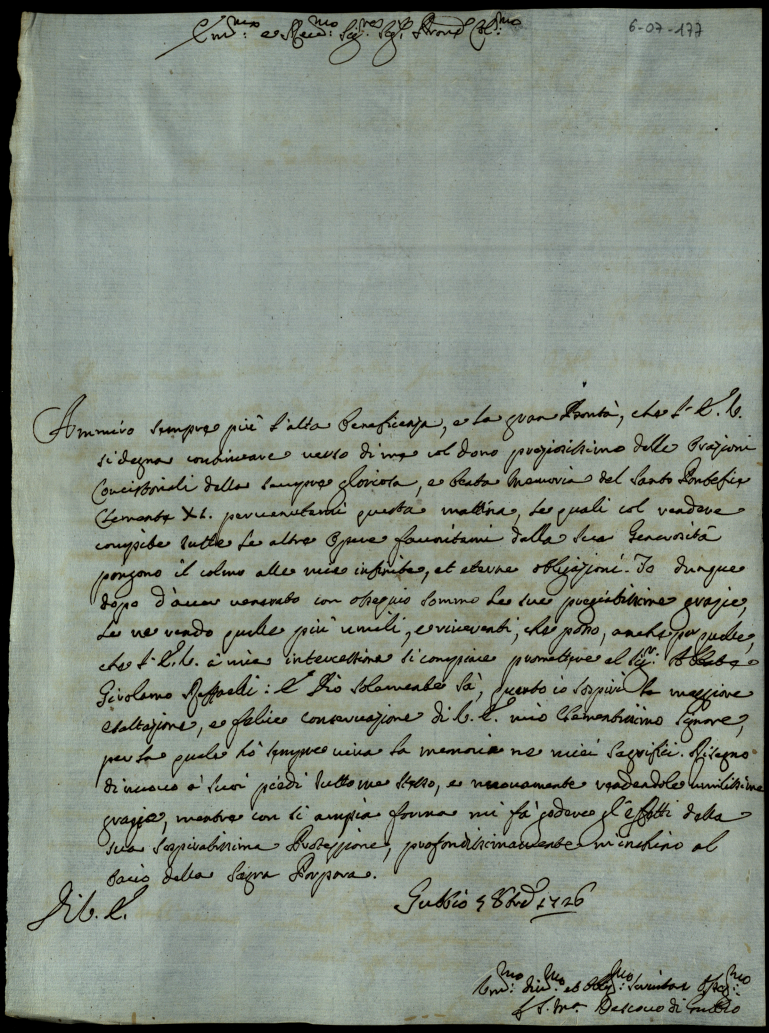 6-07-177
Em.mo e Rev.mo Sig.re Sig.r Pron. Col.mo
Ammiro sempre più l'alta beneficenza, e la gran Bontà, che l'E. V.
si degna continuare verso di me col dono preziosissimo delle Orazioni
Concistoriali della sempre gloriosa, e beata memoria del Santo Pontefice
Clemente XI. pervenutemi questa mattina, le quali col rendere
compite tutte le altre Opere favoritemi dalla sua Generosità
pongono il colmo alle mie infinite, et eterne obligazioni. Io dunque
dopo d'aver venerato con ossequio sommo le sue pregiatissime grazie,
le ne rendo quelle più umili, e riverenti, che posso, anche per quelle,
che l'E. V. à mia intercessione si compiace promettere al Sig.r Abbate
Girolamo Raffaelli: E Dio solamente sà, quanto io sospiri la maggiore
esaltazione, e felice conservazione di V. E. mio Clementissimo Signore,
per la quale hò sempre viva la memoria ne miei Sagrifici. Rasegno
di nuovo à suoi piedi tutto me stesso, e nuovamente rendendole umilissime
grazie, mentre con sì ampia forma mi fà godere gl'effetti della
sua sospiratissima Protezzione, profondissimamente m'inchino al
bacio della Sagra Porpora.
Di V. E. Gubbio 5 8bre 1726
Um.mo Div.mo et Obl.mo Servitore Osseq.mo
Vescovo di Gubbio